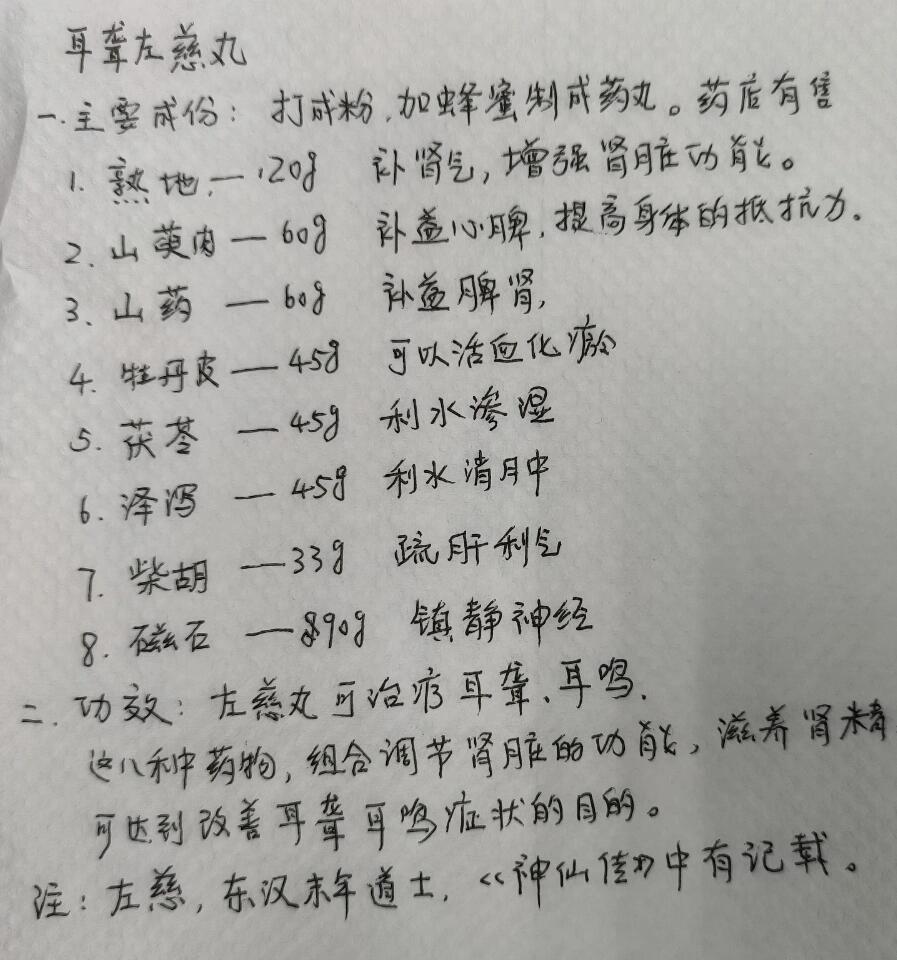 耳聋左慈丸
一.主要成份：打成粉,加蜂蜜制成药丸。药店有售
1. 熟地 — 120g 补肾气，增强肾脏功能。
2. 山萸肉 — 60g 补益心脾,提高身体的抵抗力。
3、山药 — 60g 补益脾肾,
4. 牡丹皮 — 45g 可以活血化瘀
5. 茯苓 — 45g 利水渗湿
6. 泽泻 — 45g 利水消肿
7. 柴胡 — 33g 疏肝利气
8. 磁石 — 90g 镇静神经
二.功效：左慈丸可治疗耳聋、耳鸣.
这八种药物，组合调节肾脏的功能，滋养肾精
可达到改善耳聋耳鸣症状的目的。
注：左慈，东汉末年道士，《神仙传》中有记载。